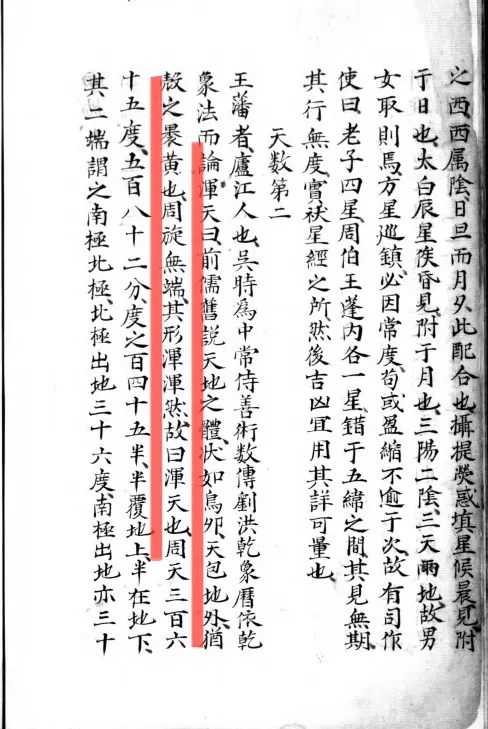 之西、西属陰、日旦而月夕、此配合也、攝提熒惑填星候晨見、附
于日也、太白辰星俟昏見、附于月也、三陽二陰、三天兩地、故男
女取則焉、方星巡鎮、必因常度、苟或盈縮不愈于次、故有司作
使曰、老子四星、周伯王蓬内各一星、錯于五緯之間、其見無期、
其行無度、實袄星經之所、然後吉凶宜用其詳可量也、
天数第二
王藩者、廬江人也、吳時爲中常侍、善術数、傳劉洪乾象曆、依乾
象法而論渾天曰、前儒舊說、天地之體、狀如鳥夘、天包地外、猶
殼之褁黄也、周旋無端、其形渾渾然、故曰渾天也、周天三百六
十五度、五百八十二分、度之百四十五半、半覆地上、半在地下、
其二端謂之南極北極、北極出地三十六度、南極出地亦三十